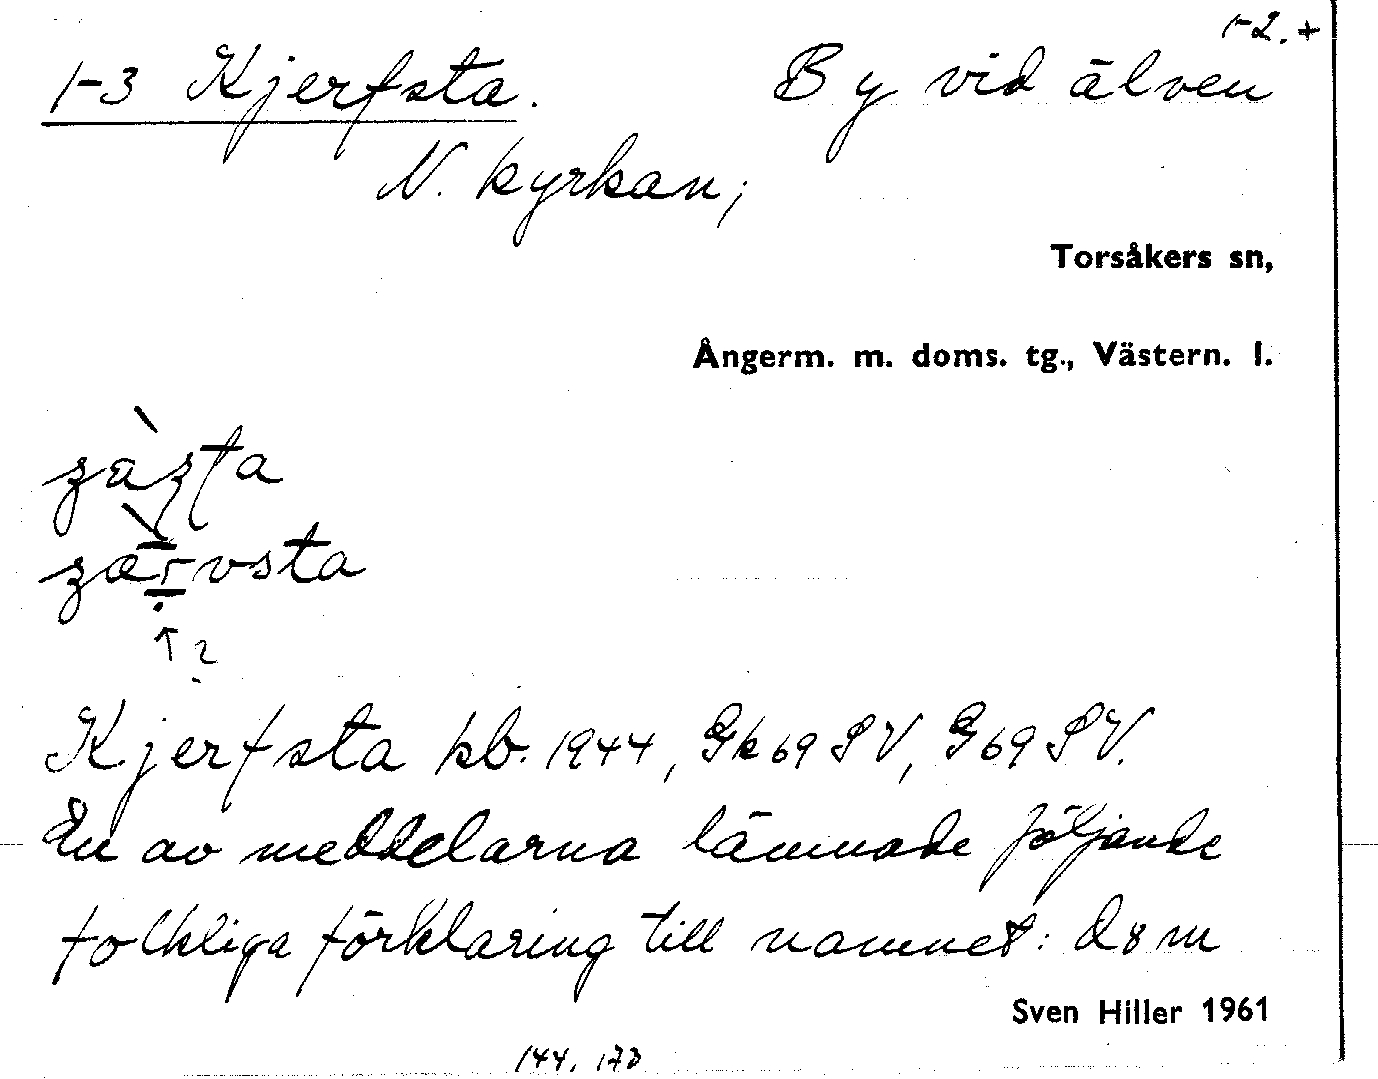 1-2. +
1-3 Kjerfsta. By vid älven
N. kyrkan;
Torsåkers sn,
Ångerm. m. doms. tg., Västern. l.
↑ ?
Kjerfsta kb. 1944, Gk 69 SV, G 69 SV.
En av meddelarna lämnade följande
folkliga förklaring till namnet: d8m
Sven Hiller 1961
144, 173